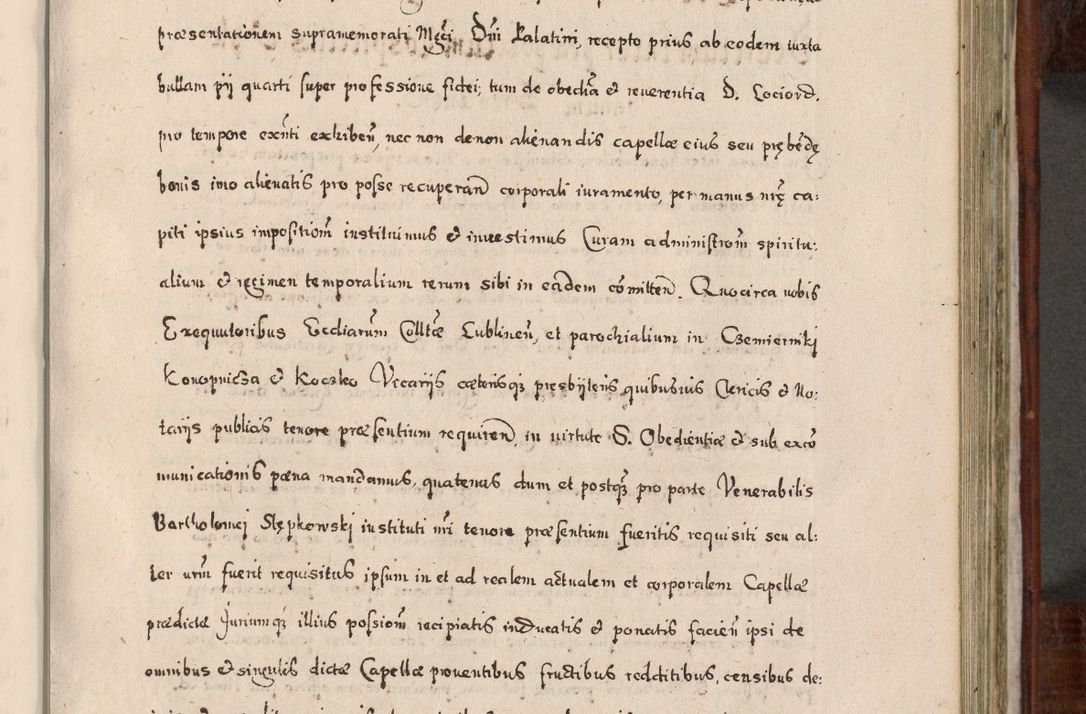 præsentationem supramemorati Mgci Dni Palatini, recepto prius ab eodem iuxta
bullam pij quarti super professione fidei, tum de obedia et reverentia D. Lociord.
pro tempore exnti exhiben, nec non de non alienandis capellæ eius seu prębędę
bonis imo alienatis pro posse recuperan corporali iuramento, per manus nrę ca:
piti ipsius impositiom instituimus et investimus Curam administrom spiritu:
alium et regimen temporalium rerum sibi in eadem comitten. Quocirca vobis
Exequutoribus Ecdiarum Colltæ Lublinen, et parochialium in Czemierniki
Konopnicza et Koczko Vicarijs cæterisq presbyteris quibusvis Clericis et No:
tarijs publicis tenore præsentium requiren, in virtute S. Obedientiæ et sub exco
municationis pæna mandamus, quatenus dum et postq pro parte Venerabilis
Bartholomej Slępkowski instituti nri tenore præsentium fueritis requisiti seu al:
ter vrm fuerit requisitus ipsum in et ad realem actualem et corporalem Capellæ
prædictæ Juriumq illius possiom recipiatis inducatis et ponatis facien ipsi de
omnibus et singulis dictæ Capellæ proventibus fructibus redditibus, censibus de: